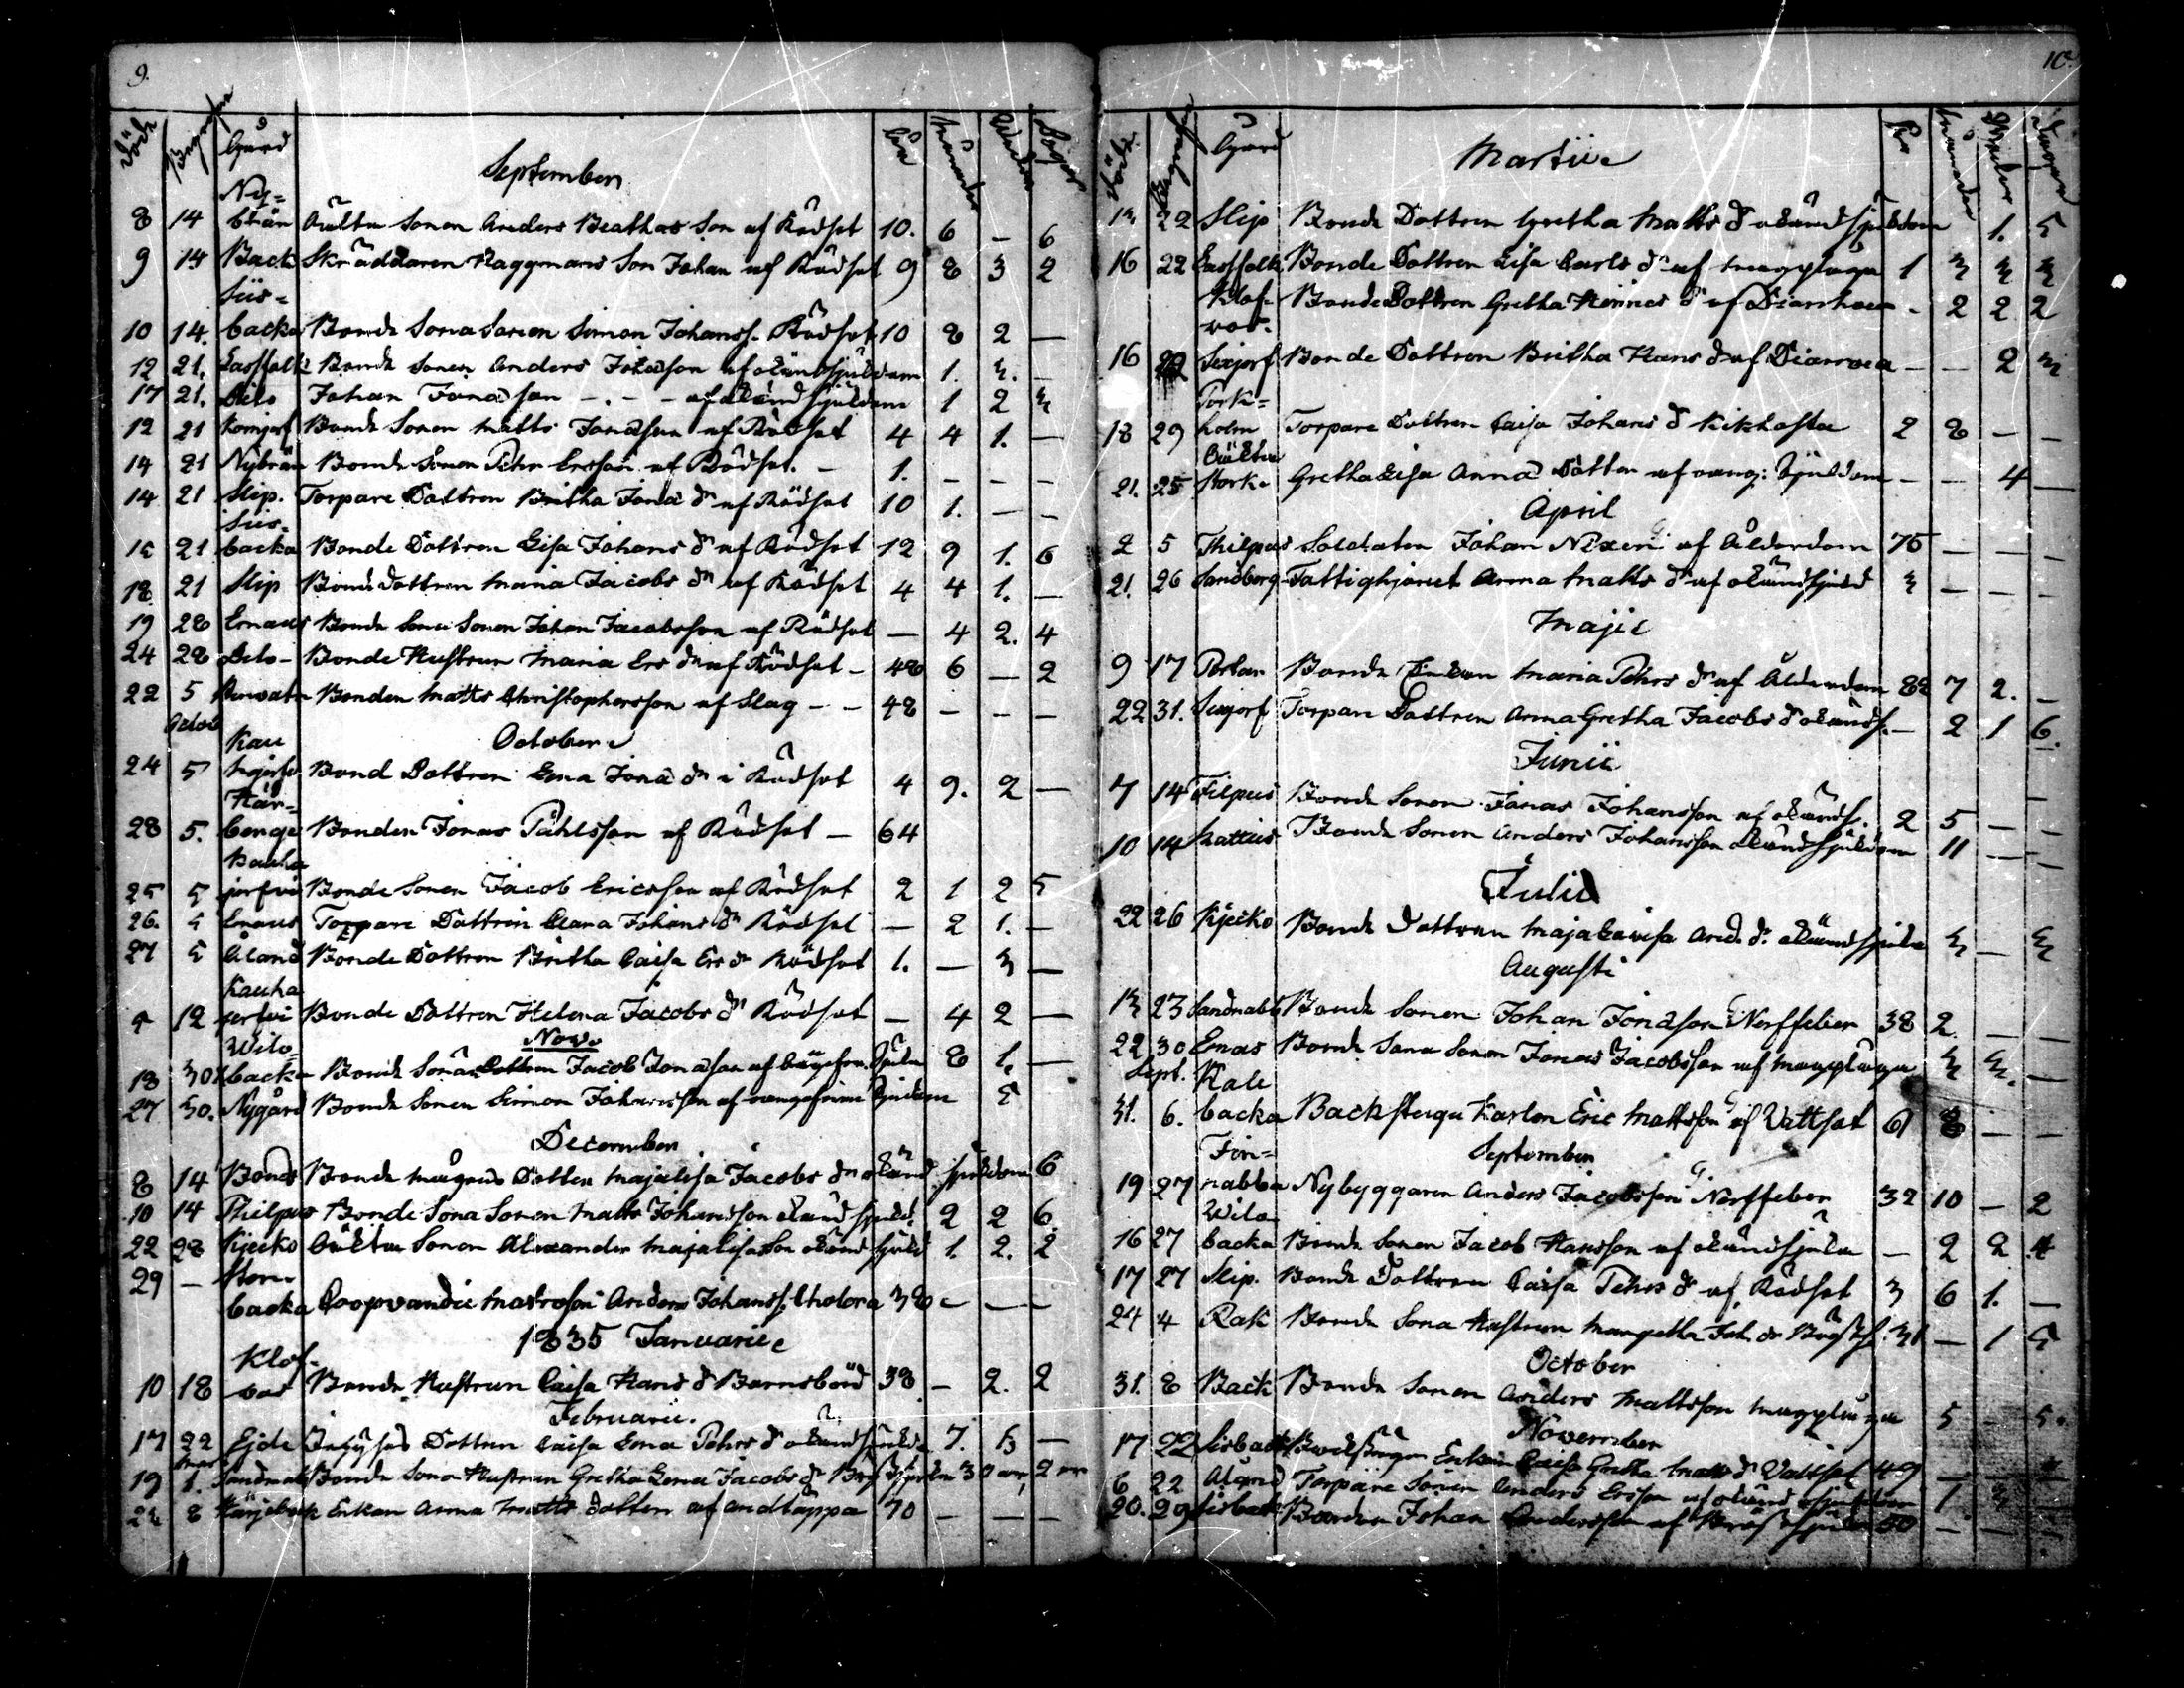 9.
Död Begrafne Gård September År Månader Veckor Dagar
Ny-
8 14 brän Oäkta Sonen Anders Beathas Son af Rödsot 10. 6 – 6
9 14 Back Skräddaren Haggmans Son Johan af Rödsot 9 8 3 2
Siis-
10 14. backa Bonde Sona Sonen Simon Johanss. Rödsot 10 8 2 —
12 21. Lassfolk Bonde Sonen Anders Jonasson af okänd sjukdom 1. 3. –
17 21. Dito Johan Jonasson – . – – af okänd sjukdom 1 2 3
12 21 Bonde Sonen Matts Jonasson af Rödsot 4 4 1. —
14 21 Nybrän Bonde Sonen Pehr Ersson af Rödsot. – 1. – – –
14 21 Slip. Torpare Dottren Britha Jona dr af Rödsot 10 1. — –
Siis-
15 21 backa Bonde Dottren Lisa Johans dr af Rödsot 12 9 1. 6
18 21 Slip Bond. dottren Maria Jacobs dr af Rödsot 4 4 1. —
19 28 Emaus Bonde Sona Sonen Johan Jacobsson af Rödsot — 4 2. 4
24 28 Dito – Bonde Hustrun Maria Ers dr af Rödsot – 48 6 — 2
22 5 Bonden Matts Christophersson af Slag – – 48 – – –
Octob
October
Kau
24 5 hajerfvi Bond Dottren Lena Jona dr i Rödsot 4 9. 2 —
Här-
28 5. benge Bonden Jonas Påhlsson af Rödsot — 64
Kauha
25 5 jerfvi Bonde Sonen Jacob Ericsson af Rödsot 2 1 2 5
26. 5 Emaus Torpare Dottren Clara Johans dr Rödsot — 2 1. –
27 5 Åland Bonde Dottren Britha Caisa Ers dr Rödsot 1. — 3 —
Kauha
12 jerfvi Bonde Dottren Helena Jacobs dr Rödsot — 4 2 —
Nov.
Wito-
18 30 backa Bonde Jacob Jonasson af 8 1. —
27 30. Nygård Bonde Sonen Simon Johansson af sjukdom 5
December
8 14 Bonds Bonde Dotter Majalisa Jacobs dr okänd sjukdom 6
10 14 Philpus Bonde Sona Sonen Matts Johansson okänd sjukd. 2 2 6.
22 28 Kjecko Oäkta Sonen Alexander Majalisas Son okänd sjukd 1. 2. 2
29 — Stor-
backa Coopvardie Matrosen Anders Johanss. Cholera 38 – — –
1835 Januarii
Klof-
10 18 vas Bonde Hustrun Caisa Hans d Barnsbörd 38 – 2. 2
Februarii.
17 22 Ejde Dottren Caisa Lena Pehrs d okänd sjukd. 7. 3 —
Mars
19 1. Sandnabb Bonde Sona Hustrun Gretha Lena Jacobs dr Bröstsjukdom 30
8 Enkan Anna Matts dotter af andtäppa 70 – — –
10.
Död Begrafne Gård Martii År Månader Veckor Dagar
22 Slip Bonde Dottren Gretha Matts d okänd sjukdom 1. 5
16 22 Lassfolk Bonde Dottren Lisa Carls dr af magplåga 1 3 3 3
Klof- Bonde Dottren Gretha Hinrics d af Diarrhoea – 2 2 2
vas.
16 Sexjerf Bonde Dottren Britha Hans d af Diarroea – — 2 3
Tork-
18 29 holm Torpare Dottren Caisa Johans d Kikhosta 2 8 – –
Oäkta
21. 25 Stork. Gretha Lisa Anna Dotter af sjukdom – – 4 —
April
2 5 Thilpus Soldaten Johan Nixen af Ålderdom 75 — – –
21. 26 Sandberg Fattighjonet Anna Matts dr af okänd sjukd 3 – – –
Maji
9 17 Portar Bonde Enkan Maria Pehrs dr af Ålderdom 82 7 2. –
22 31. Sexjerf Torpare Dottren Anna Gretha Jacobs d okänd s. – 2 1 6.
Junii
7 14 Filpus Bonde Sonen Jonas Johansson af okänd s. 2 5 – –
10 14 Mattus Bonde Sonen Anders Johansson okänd sjukdom 11 — —
Julii
22 26 Kjecko Bonde Dottren Maja Lovisa And. dr. okänd sjukdom 3 — 3
Augusti
13 23 Sandnabb Bonde Sonen Johan Jonasson Nerffeber 38 2 – –
22 30 Emas Bonde Sona Sonen Jonas Jacobsson af magplåga 3 3. –
Sept. Kale
31. 6. backa Backstugu Karlen Eric Mattsson af Vattsot 61 8 – –
September
Fin-
19 27 nabba Nybyggaren Anders Jacobsson Nerffeber 32 10 – 2
Wito
16 27 backa Bonde Sonen Jacob Hansson af okänd sjukd – 2 2 4
17 27 Slip. Bonde Dottren Caisa Pehrs d. af Rödsot 3 6 1. —
24 4 Rak Bonde Sona Hustrun Margetha Joh. dr Bröstsj. 31 – 1 5
October
31. 8 Back Bonde Sonen Anders Mattsson magplåga 5 – 5.
November
17 22 Siisback Enkan Caisa Gretha Matts d Vattsot 49 – –
6 22 Åland Torpare Sonen Anders Ersson af okänd sjukdom 1 3 –
20. 29 Siisback Bonden Johan Andersson af Bröstsjukdom 50 – – –